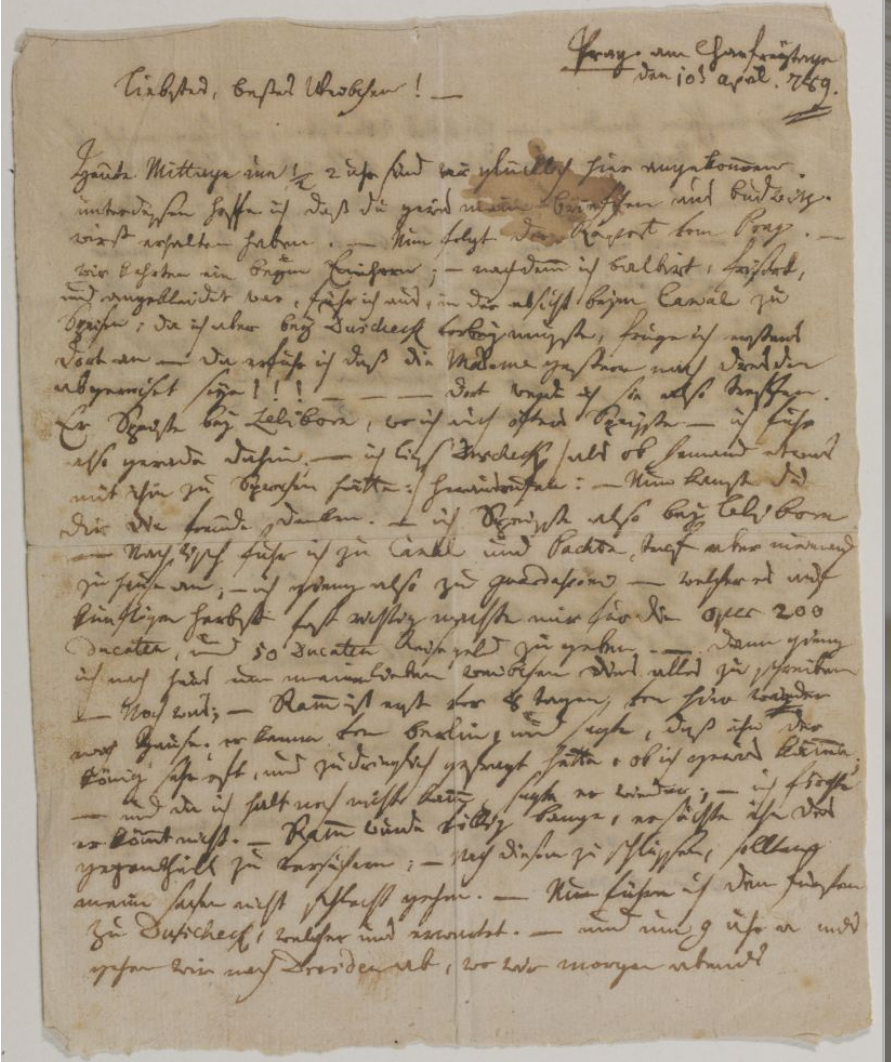 Prag. am Charfreytage
den 10t april. 789.
liebstes, bestes Weibchen! —
Heute Mittage um 1/2 2 uhr sind wir glücklich hier angekommen.
unterdessen hoffe ich daß du gewis mein briefchen aus budwitz
wirst erhalten haben. — Nun folgt der Rapport von Prag. —
wir kehrten ein beym Einhorn; — nachdem ich balbirt, frisirt,
und angekleidet war, fuhr ich aus, in der absicht beym Canal zu
Speisen; da ich aber bey Duscheck vorbey musste, fruge ich erstens
dort an — da erfuhr ich daß die Madame gestern nach dresden
abgereiset seye!!! — — — dort werde ich sie also treffen.
Er Speiste bey Leliborn, wo ich auch öfters Speisste — ich fuhr
also gerade dahin. — ich ließ Duscheck /als ob Jemand etwas
mit ihm zu Sprechen hätte:/ herausrufen: — Nun kanst du
dir die freude denken. — ich Speisste also bey Leliborn
— Nach tisch fuhr ich zu Canal und Pachta, traf aber niemand
zu hause an; — ich gieng also zu guardassoni — welcher es auf
künftigen herbst fast richtig machte mir für die oper 200
Ducaten, und 50 Ducaten Reisegeld zu geben. — dann gieng
ich nach haus um meinem lieben weibchen dies alles zu schreiben
— Noch was; — Ramm ist erst vor 8 tagen, von hier wieder
nach Hause. er kamm von berlin, und sagte, daß ihn der
König sehr oft, und zudringlich gefragt hätte, ob ich gewis komme,
— und da ich halt noch nicht kam, sagte er wieder; — ich fürchte
er kömmt nicht. — Ramm wurde völlig bange, er suchte ihn des
gegentheils zu versichern; — Nach diesem zu schlüssen, sollten
meine sachen nicht schlecht gehen. — Nun führe ich den fürsten
zu Duscheck, welcher uns erwartet. — und um 9 uhr abends
gehen wir nach Dresden ab, wo wir morgen abends